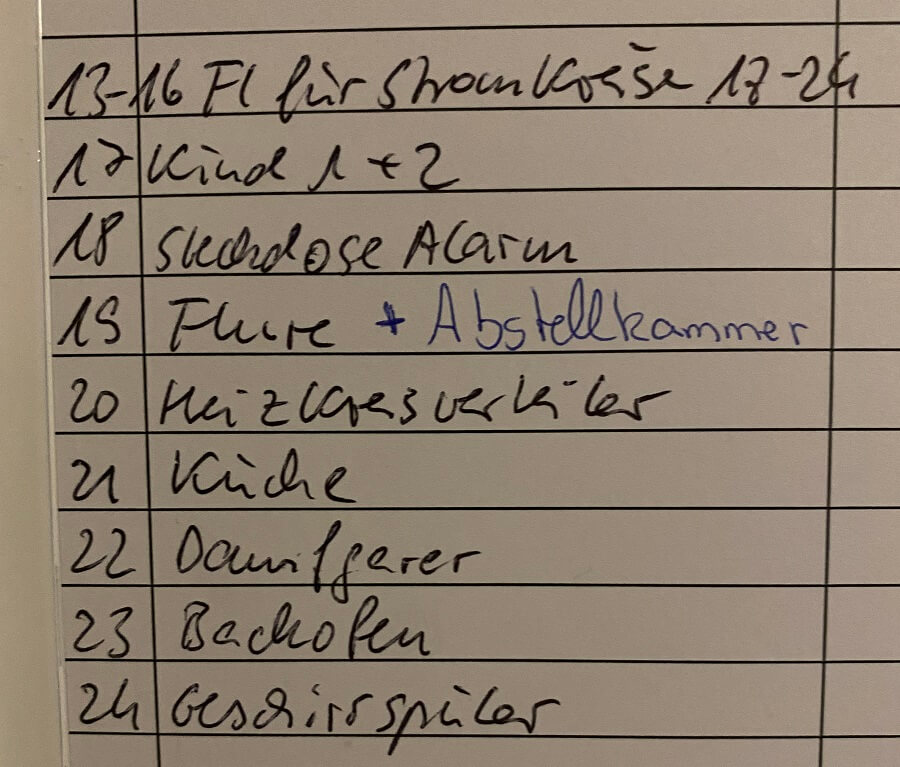 13-16 FI für Stromkreise 17-24
17 Kind 1 + 2
18 Steckdose Alarm
19 Flure + Abstellkammer
20 Heizkreisverteiler
21 Küche
22 Dampfgarer
23 Backofen
24 Geschirrspüler